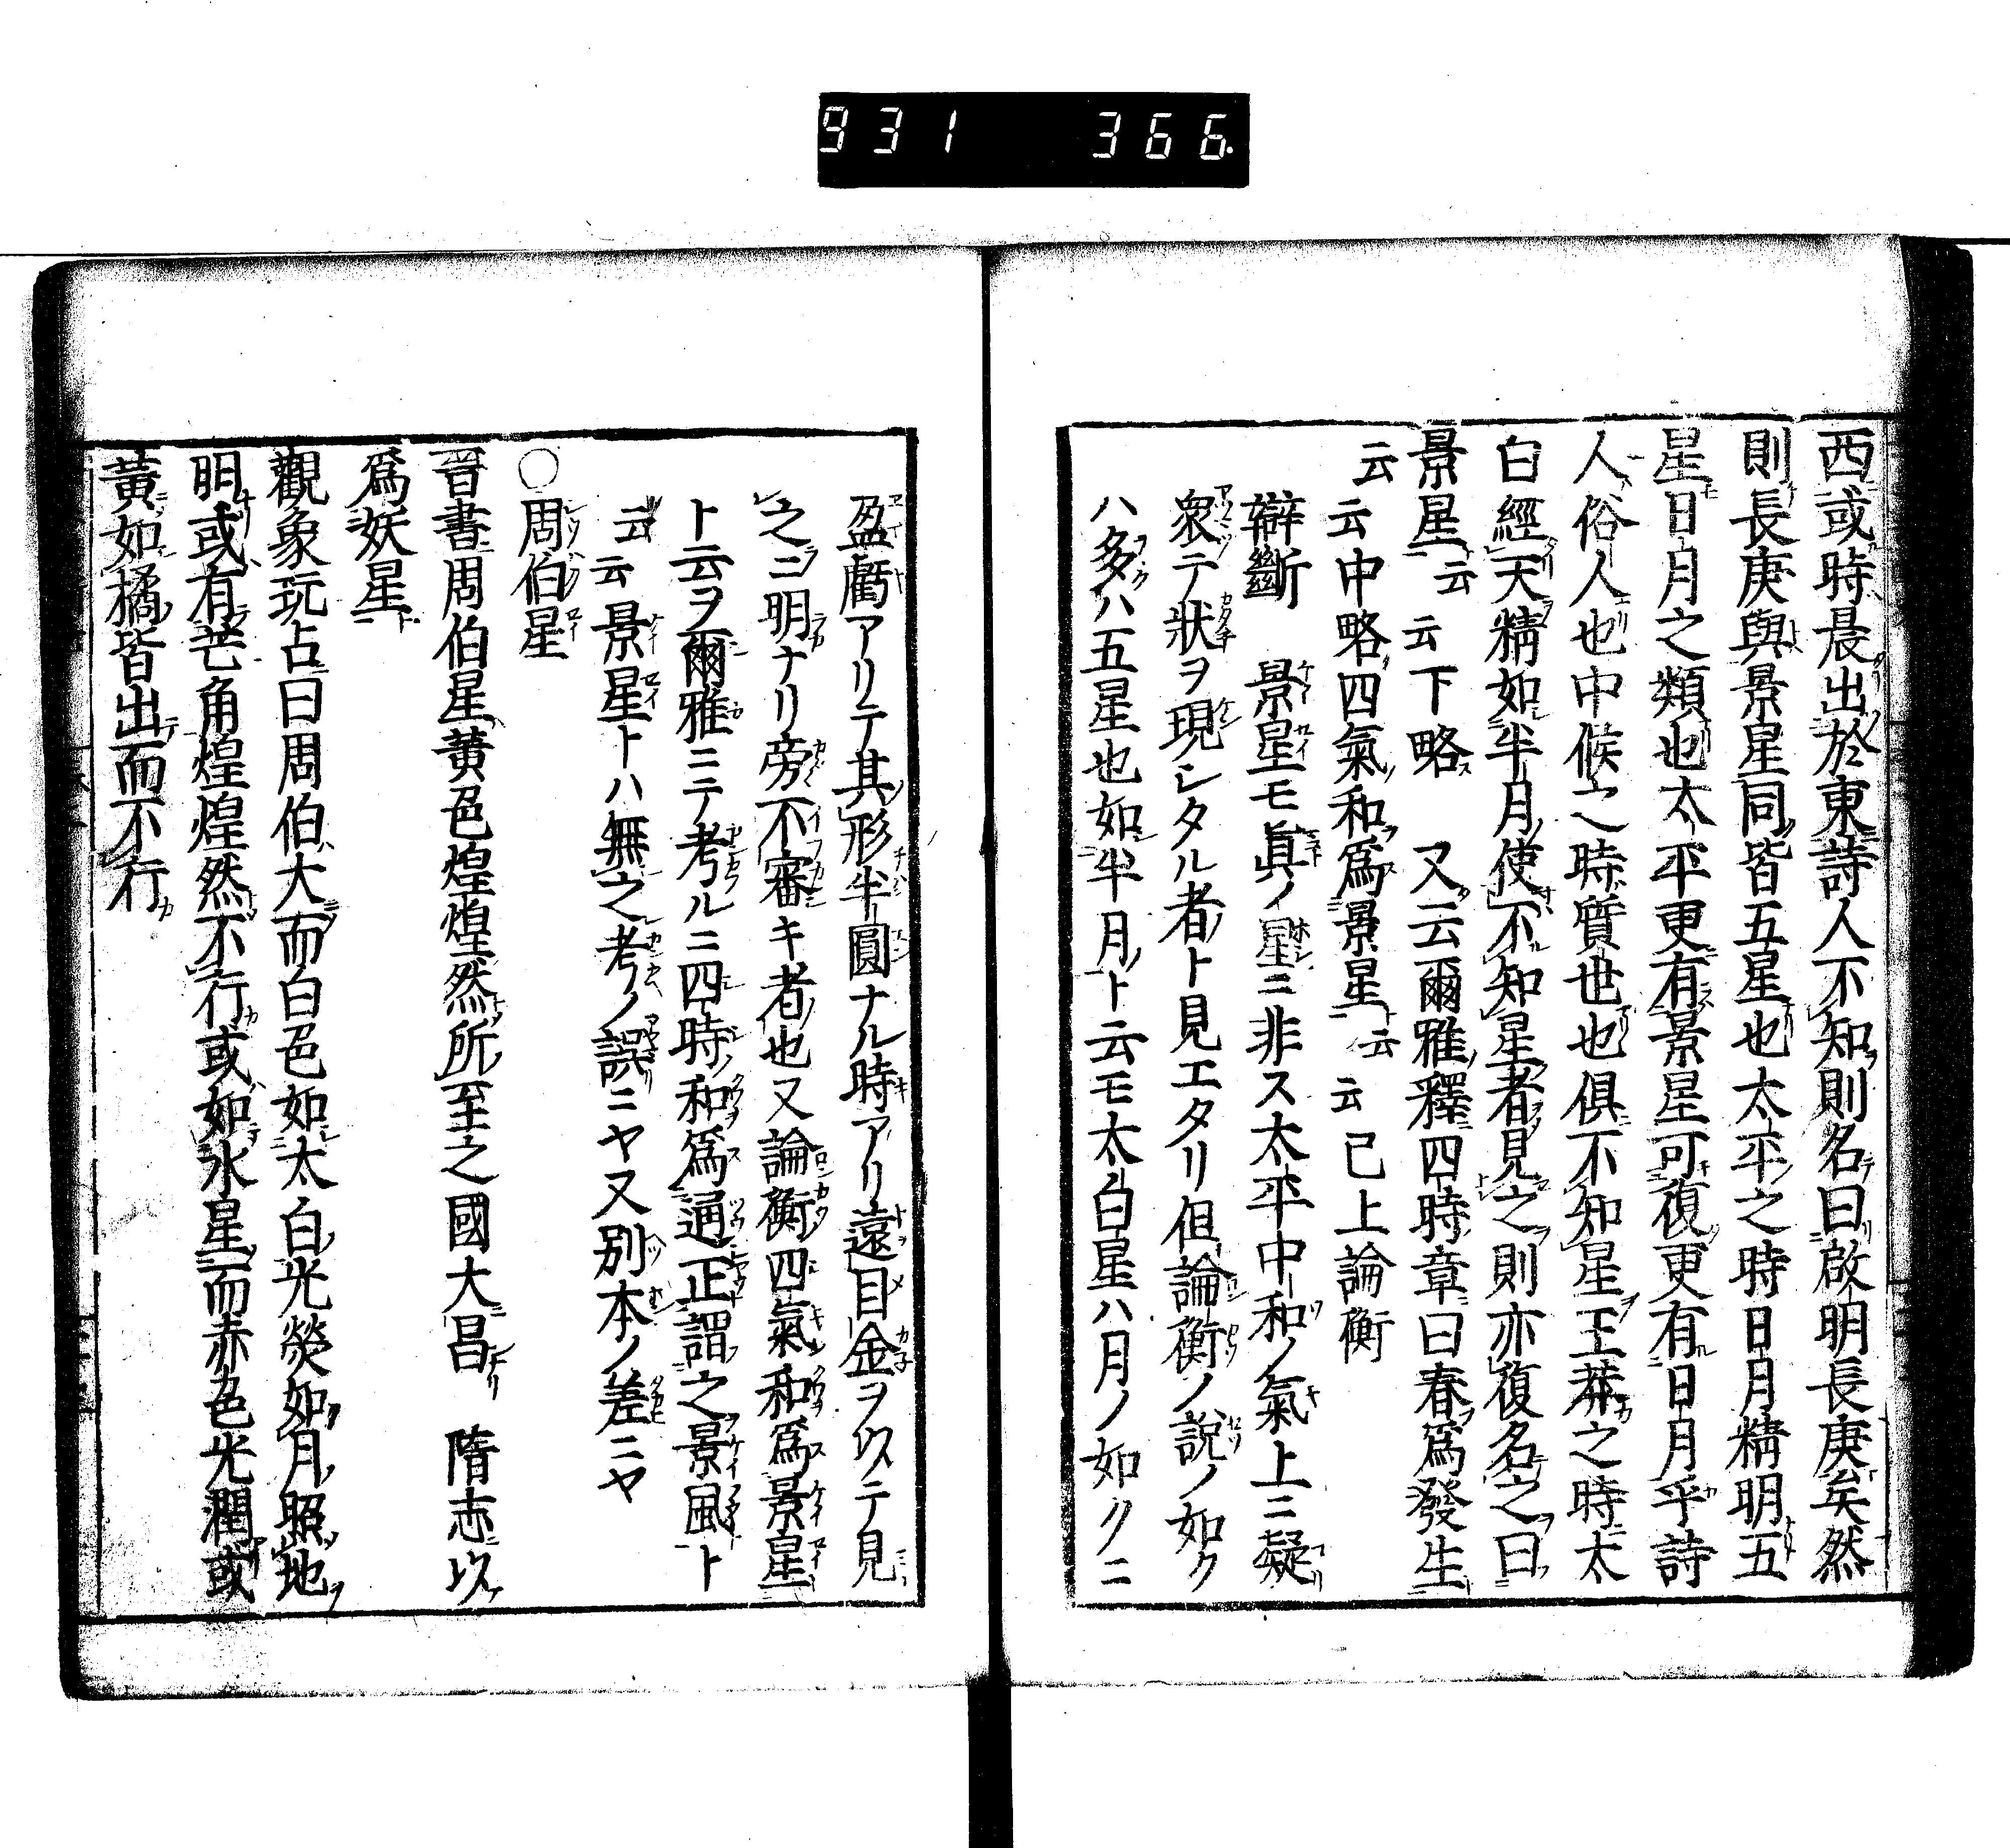 931 366.
西或時晨出於東詩人不知則名曰啟明長庚矣然
則長庚與景星同皆五星也太平之時日月精明五
星日月之類也太平更有景星可復更有日月乎詩
人俗人也中候之時質世也俱不知星王莽之時太
白經天精如半月使不知星者見之則亦復名之曰
景星云云下略 又云爾雅釋四時章曰春爲發生
云云中略四氣和爲景星云云已上論衡
辯斷 景星モ眞ノ星ニ非ス太平中和ノ氣上ニ凝
衆テ狀ヲ現シタル者ト見エタリ但論衡ノ說ノ如ク
ハ多ハ五星也如半月ト云モ太白星ハ月ノ如クニ
盈虧アリテ其形半圓ナル時アリ遠目金ヲ以テ見
之ニ明ナリ旁不審キ者也又論衡四氣和爲景星
ト云ヲ爾雅ニテ考ルニ四時和爲通正謂之景風ト
云云景星トハ無之考ノ誤ニヤ又別本ノ差ニヤ
○周伯星
晉書周伯星黃色煌煌然所至之國大昌 隋志以
爲妖星
觀象玩占曰周伯大而白色如太白光熒如月照地
明或有芒角煌煌然不行或如水星而赤色光潤或
黃如橘皆出而不行